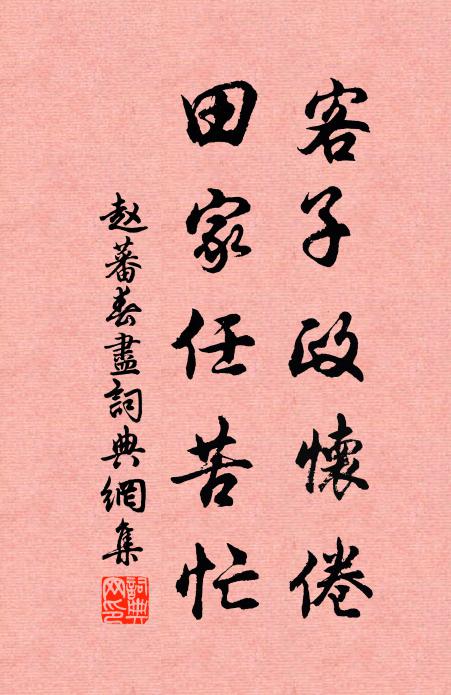 客子政懷倦
田家任苦忙
赵蕃春盡詞典網集
詞典網印